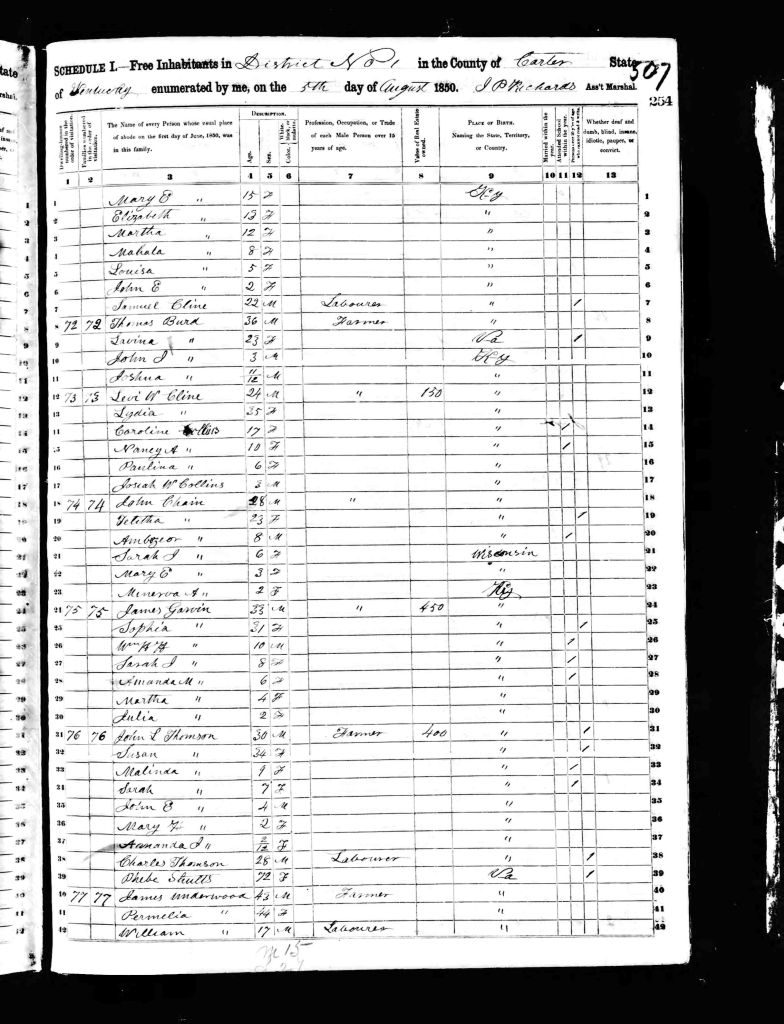 SCHEDULE I.—Free Inhabitants in District No 1 in the County of Carter State
of Kentucky enumerated by me, on the 5th day of August 1850. J P Richards Ass't Marshal.
507
254
Dwelling-houses numbered in the order of visitation.
Families numbered in the order of visitation.
The Name of every Person whose usual place of abode on the first day of June, 1850, was in this family.
DESCRIPTION.
Age.
Sex.
Color, White, black, or mulatto.
Profession, Occupation, or Trade of each Male Person over 15 years of age.
Value of Real Estate owned.
PLACE OF BIRTH. Naming the State, Territory, or Country.
Married within the year.
Attended School within the year.
Whether deaf and dumb, blind, insane, idiotic, pauper, or convict.
1 2 3 4 5 6 7 8 9 10 11 12 13
1 Mary E " 15 F Ky 1
2 Elizabeth " 13 F " 2
3 Martha " 12 F " 3
4 Mahala " 8 F " 4
5 Louisa " 5 F " 5
6 John E " 2 F " 6
7 Samuel Cline 22 M Labourer " / 7
8 72 72 Thomas Burd 36 M Farmer " 8
9 Lavina " 23 F Va / 9
10 John J " 3 M Ky 10
11 Joshua " 11/12 M " 11
12 73 73 Levi W Cline 24 M " 150 " 12
13 Lydia " 35 F " 13
14 Caroline Collins 17 F " / 14
15 Nancy A " 10 F " / 15
16 Paulina " 6 F " 16
17 Josiah W Collins 3 M " 17
18 74 74 John Chain 28 M " " 18
19 Telitha " 23 F " / 19
20 Ambozeor " 8 M " / 20
21 Sarah J " 6 F Wisconsin 21
22 Mary E " 3 F " 22
23 Minerva A " 2 F Ky 23
24 75 75 James Garvin 33 M " 450 " 24
25 Sophia " 31 F " / 25
26 Wm H H " 10 M " / 26
27 Sarah J " 8 F " / 27
28 Amanda M " 6 F " / 28
29 Martha " 4 F " 29
30 Julia " 2 F " 30
31 76 76 John L Thomson 30 M Farmer 400 " / 31
32 Susan " 34 F " / 32
33 Malinda " 9 F " / 33
34 Sarah " 7 F " / 34
35 John E " 4 M " 35
36 Mary F " 2 F " 36
37 Amanda J " 2/12 F " 37
38 Charles Thomson 28 M Labourer " / 38
39 Phebe Shutts 72 F Va / 39
40 77 77 James Underwood 43 M Farmer " 40
41 Permelia " 44 F " 41
42 William " 17 M Labourer " 42
M 15